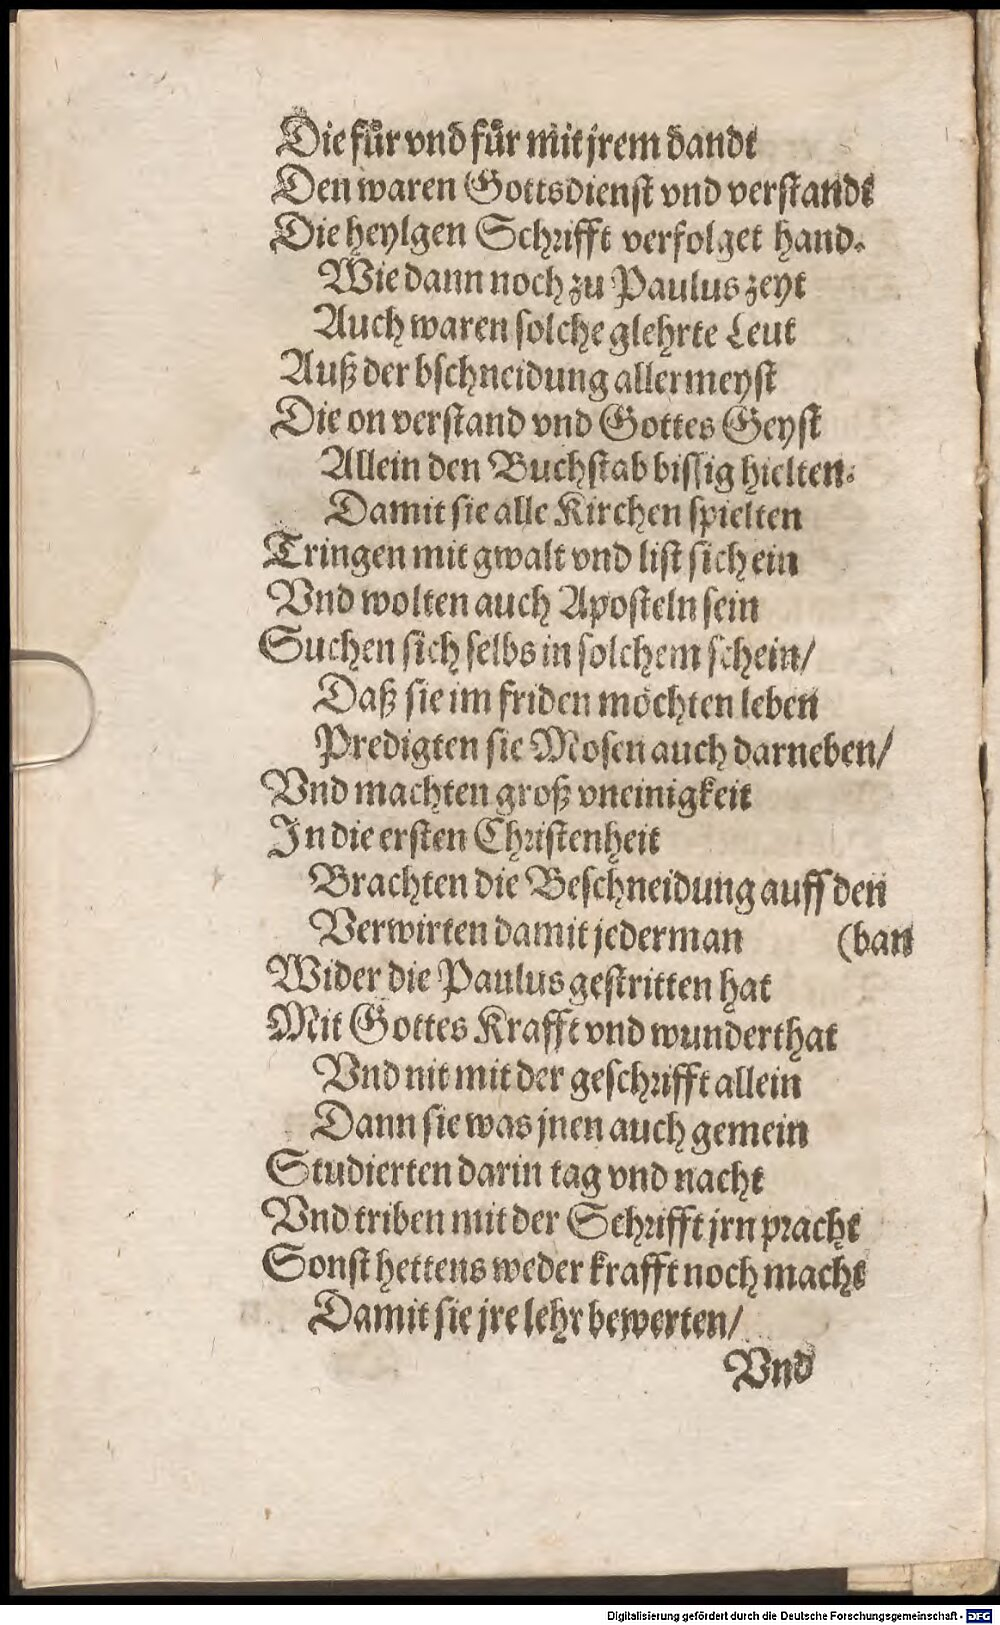 Die fůr vnd fůr mit jrem dandt
Den waren Gottsdienst vnd verstandt
Die heylgen Schrifft verfolget hand.
Wie dann noch zu Paulus zeyt
Auch waren solche glehrte Leut
Auß der bschneidung allermeyst
Die on verstand vnd Gottes Geyst
Allein den Buchstab bissig hielten.
Damit sie alle Kirchen spielten
Tringen mit gwalt vnd list sich ein
Vnd wolten auch Aposteln sein
Suchen sich selbs in solchem schein/
Daß sie im friden möchten leben
Predigten sie Mosen auch darneben/
Vnd machten groß vneinigkeit
In die ersten Christenheit
Brachten die Beschneidung auff den
Verwirten damit jederman (ban
Wider die Paulus gestritten hat
Mit Gottes Krafft vnd wunderthat
Vnd nit mit der geschrifft allein
Dann sie was jnen auch gemein
Studierten darin tag vnd nacht
Vnd triben mit der Schrifft jrn pracht
Sonst hettens weder krafft noch macht
Damit sie jre lehr bewerten/
Vnd
Digitalisierung gefördert durch die Deutsche Forschungsgemeinschaft - DFG